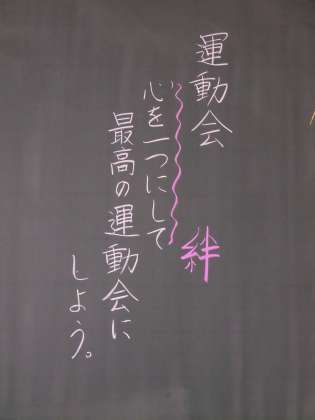 運動会
絆
心を一つにして
最高の運動会に
しよう。